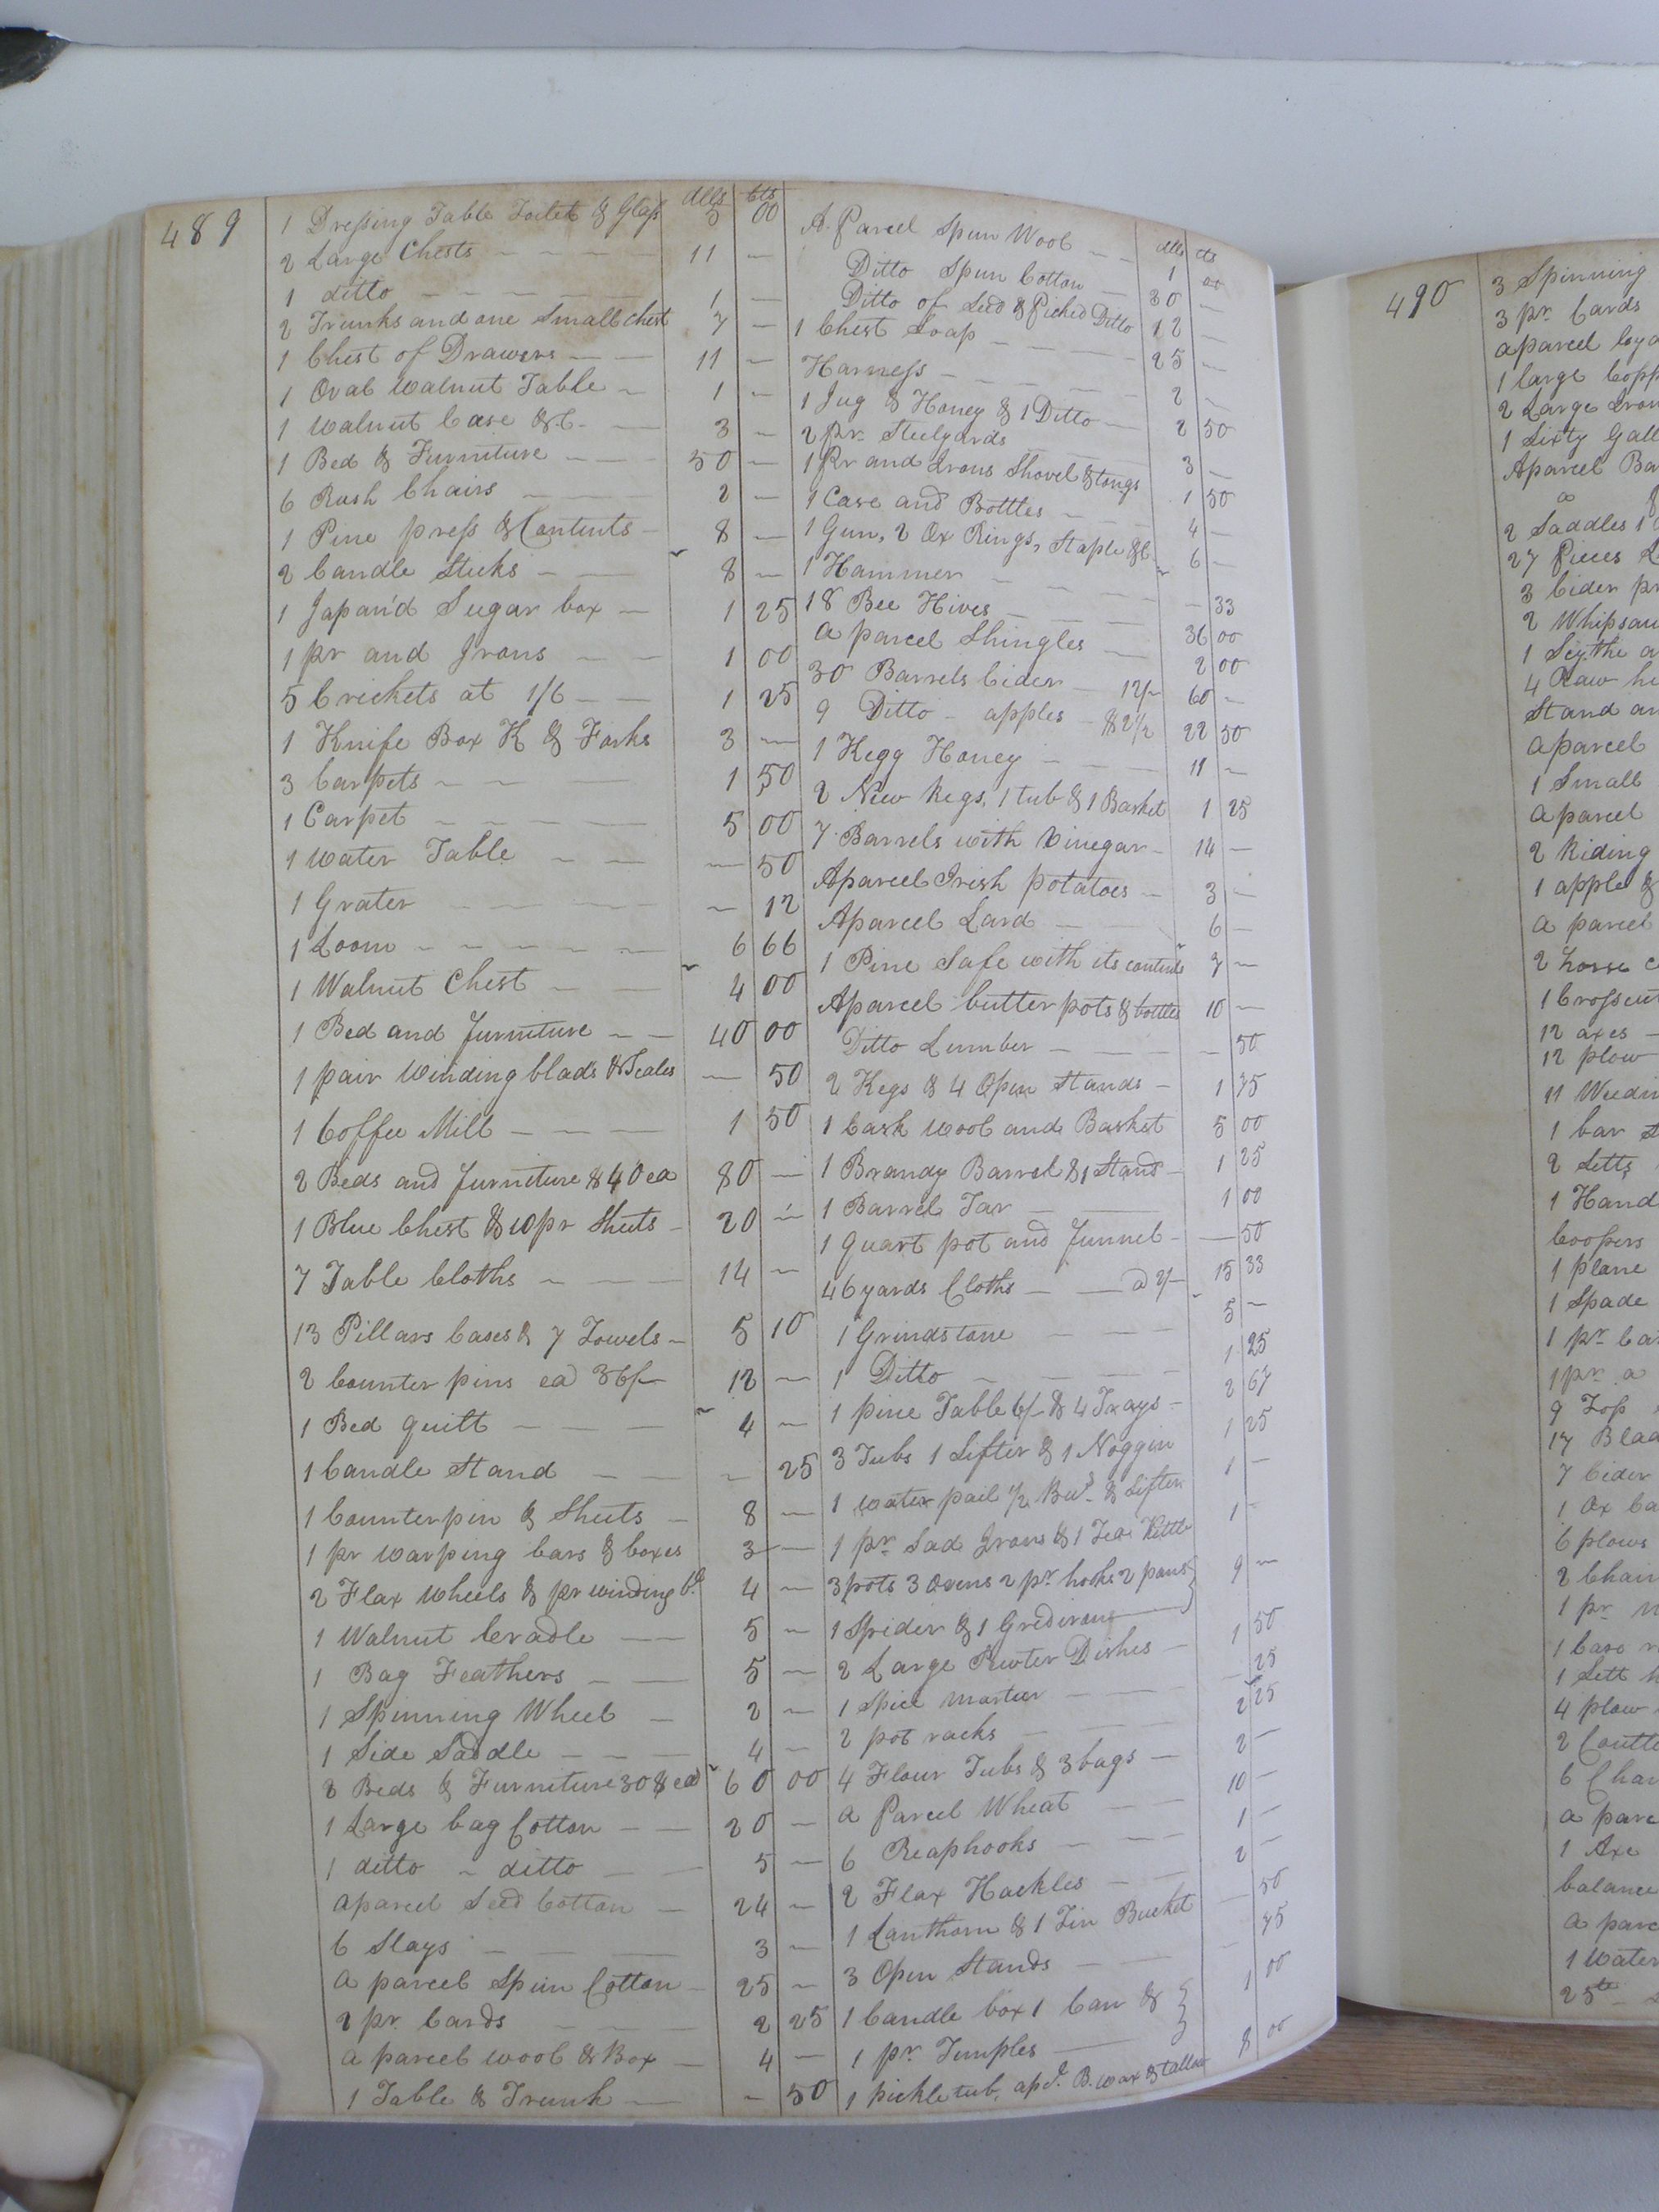 489
dlls cts
1 Dressing Table Toilet & Glass 5 00
2 Large Chests 11 —
1 ditto 1 —
2 Trunks and one Small Chest 7 —
1 Chest of Drawers 11 —
1 Oval Walnut Table 1 —
1 Walnut Case &.C. 3 —
1 Bed & Furniture 50 —
6 Rush Chairs 2 —
1 Pine press & Contents 8 —
2 Candle Sticks 8 —
1 Japan'd Sugar box 1 25
1 pr and Irons 1 00
5 Crickets at 1/6 1 25
1 Knife Box K & Forks 3 —
3 Carpets 1 50
1 Carpet 5 00
1 Water Table — 50
1 Grater — 12
1 Loom 6 66
1 Walnut Chest 4 00
1 Bed and furniture 40 00
1 pair Winding blads & Scales — 50
1 Coffee Mill 1 50
2 Beds and furniture $40 ea 80 —
1 Blue Chest & 10 pr Sheets 20 —
7 Table Cloths 14 —
13 Pillars Cases & 7 Towels 5 10
2 Counter pins ea 36/- 12 —
1 Bed quilt 4 —
1 Candle Stand — 25
1 Counterpin & Sheets 8 —
1 pr Warping bars & boxes 3 —
2 Flax Wheels & pr winding 4 —
1 Walnut Cradle 5 —
1 Bag Feathers 5 —
1 Spinning Wheel 2 —
1 Side Saddle 4 —
2 Beds & Furniture 30$ ea 60 00
1 Large bag Cotton 20 —
1 ditto ditto 5 —
a parcel Seed Cotton 24 —
6 Slays 3 —
a parcel Spun Cotton 25 —
2 pr Cards 2 25
a parcel wool & Box 4 —
1 Table & Trunk — 50
dlls cts
A Parcel Spun Wool 1 00
Ditto Spun Cotton 30 —
Ditto of Seed & Picked Ditto 12 —
1 Chest Soap 25 —
Harness 2 —
1 Jug & Honey & 1 Ditto 2 50
2 pr Steelyards 3 —
1 Pr and Irons Shovel & tongs 1 50
1 Case and Bottles 4 —
1 Gun, 2 Ox Rings, Staple &C 6 —
1 Hammer — 33
18 Bee Hives 36 00
a parcel Shingles 2 00
30 Barrels Cider 12/- 60 —
9 Ditto apples $2½ 22 50
1 Kegg Honey 11 —
2 New Kegs, 1 tub & 1 Basket 1 25
7 Barrels with Vinegar 14 —
Aparcel Irish potatoes 3 —
Aparcel Lard 6 —
1 Pine Safe with its contents 7 —
Aparcel butter pots & bottles 10 —
Ditto Lumber — 50
2 Kegs & 4 Open Stands 1 75
1 Cask wool and Basket 5 00
1 Brandy Barrel & 1 Stand 1 25
1 Barrel Tar 1 00
1 Quart pot and funnel — 50
46 yards Cloths a 2/- 15 33
1 Grindstone 5 —
1 Ditto 1 25
1 pine Table 6/- & 4 Trays 2 67
3 Tubs 1 Sifter & 1 Noggin 1 25
1 water pail ½ Bus & Sifter 1 —
1 pr Sad Irons & 1 Tea Kettle 1 —
3 pots 3 Ovens 2 pr hooks 2 pans
1 Spider & 1 Gridirons } 9 —
2 Large Pewter Dishes 1 50
1 Spice mortur — 25
2 pot racks 2 25
4 Flour Tubs & 3 bags 2 —
a Parcel Wheat 10 —
6 Reaphooks 1 —
2 Flax Hackles 2 —
1 Lanthorn & 1 Tin Bucket — 50
3 Open Stands — 75
1 Candle box 1 Can &
1 pr Temples } 1 00
1 pickle tub, B. wax & tallow 8 00
490
3 Spinning
3 pr Cards
aparcel
1 large
2 Large
1 Sixty Gall
Aparcel
2 Saddles 1
27 Pieces
3 Cider
2 Whipsaw
1 Scythe
4 Raw
Stand
aparcel
1 Small
a parcel
2 Riding
1 apple &
a parcel
2 horse
1 Crosscut
12 axes
12 plow
11
1 bar
2 Setts
1 Hand
Coopers
1 plane
1 Spade
1 pr
1 pr a
9
17
7 Cider
1 Ox
6 plows
2
1 pr
1
1 Sett
4 plow
2
6
a
1 Axe
balance
a
1 Water
25